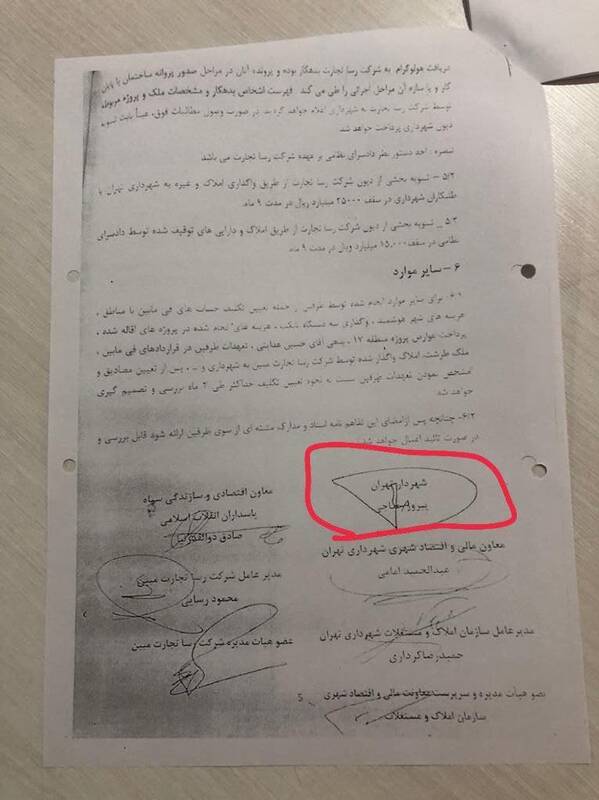 دریافت هولوگرام به شرکت رسا تجارت بدهکار بوده و پرونده آنان در مراحل صدور پروانه ساختمان یا پایان
کار و یا سازه آن مراحل اجرائی را طی می کند. فهرست اشخاص بدهکار و مشخصات ملک و پروژه مربوطه
توسط شرکت رسا تجارت به شهرداری اعلام خواهد گردید در صورت وصول مطالبات فوق، عیناً بابت تسویه
دیون شهرداری پرداخت خواهد شد
تبصره : اخذ دستور نظر دادسرای نظامی بر عهده شرکت رسا تجارت می باشد
۵/۲ – تسویه بخشی از دیون شرکت رسا تجارت از طریق واگذاری املاک و غیره به شهرداری تهران یا
طلبکاران شهرداری در سقف ۲۵۰۰۰ میلیارد ریال در مدت ۹ ماه.
۵/۳ _ تسویه بخشی از دیون شرکت رسا تجارت از طریق املاک و دارایی های توقیف شده توسط دادسرای
نظامی در سقف ۱۵,۰۰۰ میلیارد ریال در مدت ۹ ماه.
۶ – سایر موارد
۶/۱- برای سایر موارد انجام شده توسط طرفین از جمله تعیین تکلیف حساب های فی مابین با مناطق ،
هزینه های شهر هوشمند ، واگذاری سه دستگاه ، هزینه های انجام شده در پروژه های اقاله شده ،
پرداخت عوارض پروژه منطقه ۱۷ ، بدهی آقای حسین هدایتی ، تعهدات طرفین در قراردادهای فی مابین ،
ملک طرشت، املاک واگذار شده توسط شرکت رسا تجارت مبین به شهرداری و ... پس از تعیین مصادیق و
مشخص نمودن تعهدات طرفین نسبت به نحوه تعیین تکلیف حداکثر طی ۲ ماه بررسی و تصمیم گیری
خواهد شد
۶/۲- چنانچه پس از امضای این تفاهم نامه اسناد و مدارک مثبته ای از سوی طرفین ارائه شود قابل بررسی و
در صورت تائید اعمال خواهد شد
شهردار تهران
پیروز حناچی
معاون اقتصادی و سازندگی سپاه
پاسداران انقلاب اسلامی
صادق ذوالقدرنیا
معاون مالی و اقتصاد شهری شهرداری تهران
عبدالحمید امامی
مدیر عامل شرکت رسا تجارت مبین
محمود رسایی
مدیر عامل سازمان املاک و مستغلات شهرداری تهران
حمیدرضا کرداری
عضو هیات مدیره شرکت رسا تجارت مبین
عضو هیأت مدیره و سرپرست معاونت مالی و اقتصاد شهری
سازمان املاک و مستغلات
5